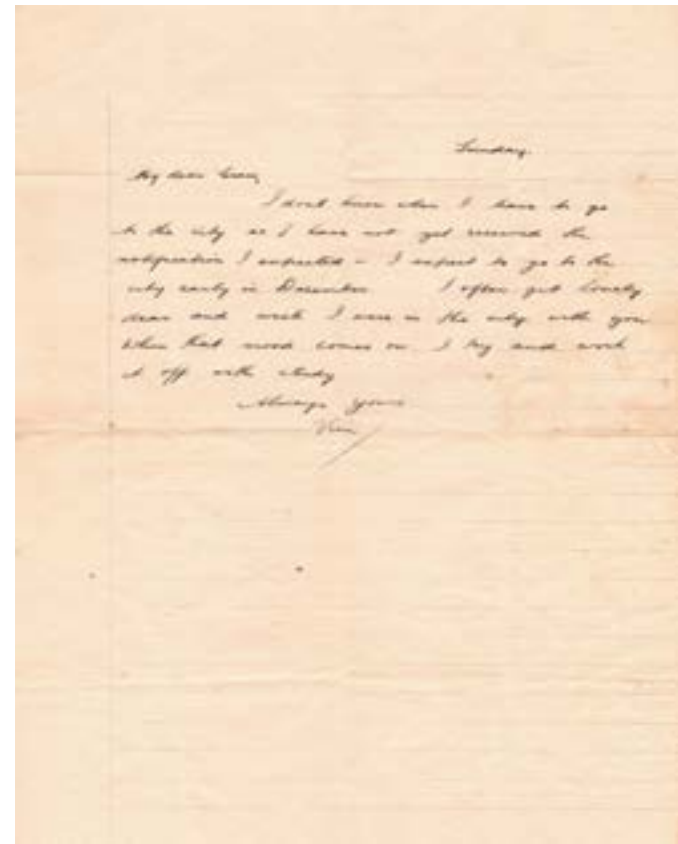 Sunday
My dear
I dont know when I have to go
to the city as I have not yet received the
notification I expected – I expect to go to the
city early in December I often get lonely
dear and wish I were in the city with you
When that mood comes on I try and work
it off with study
Always yours